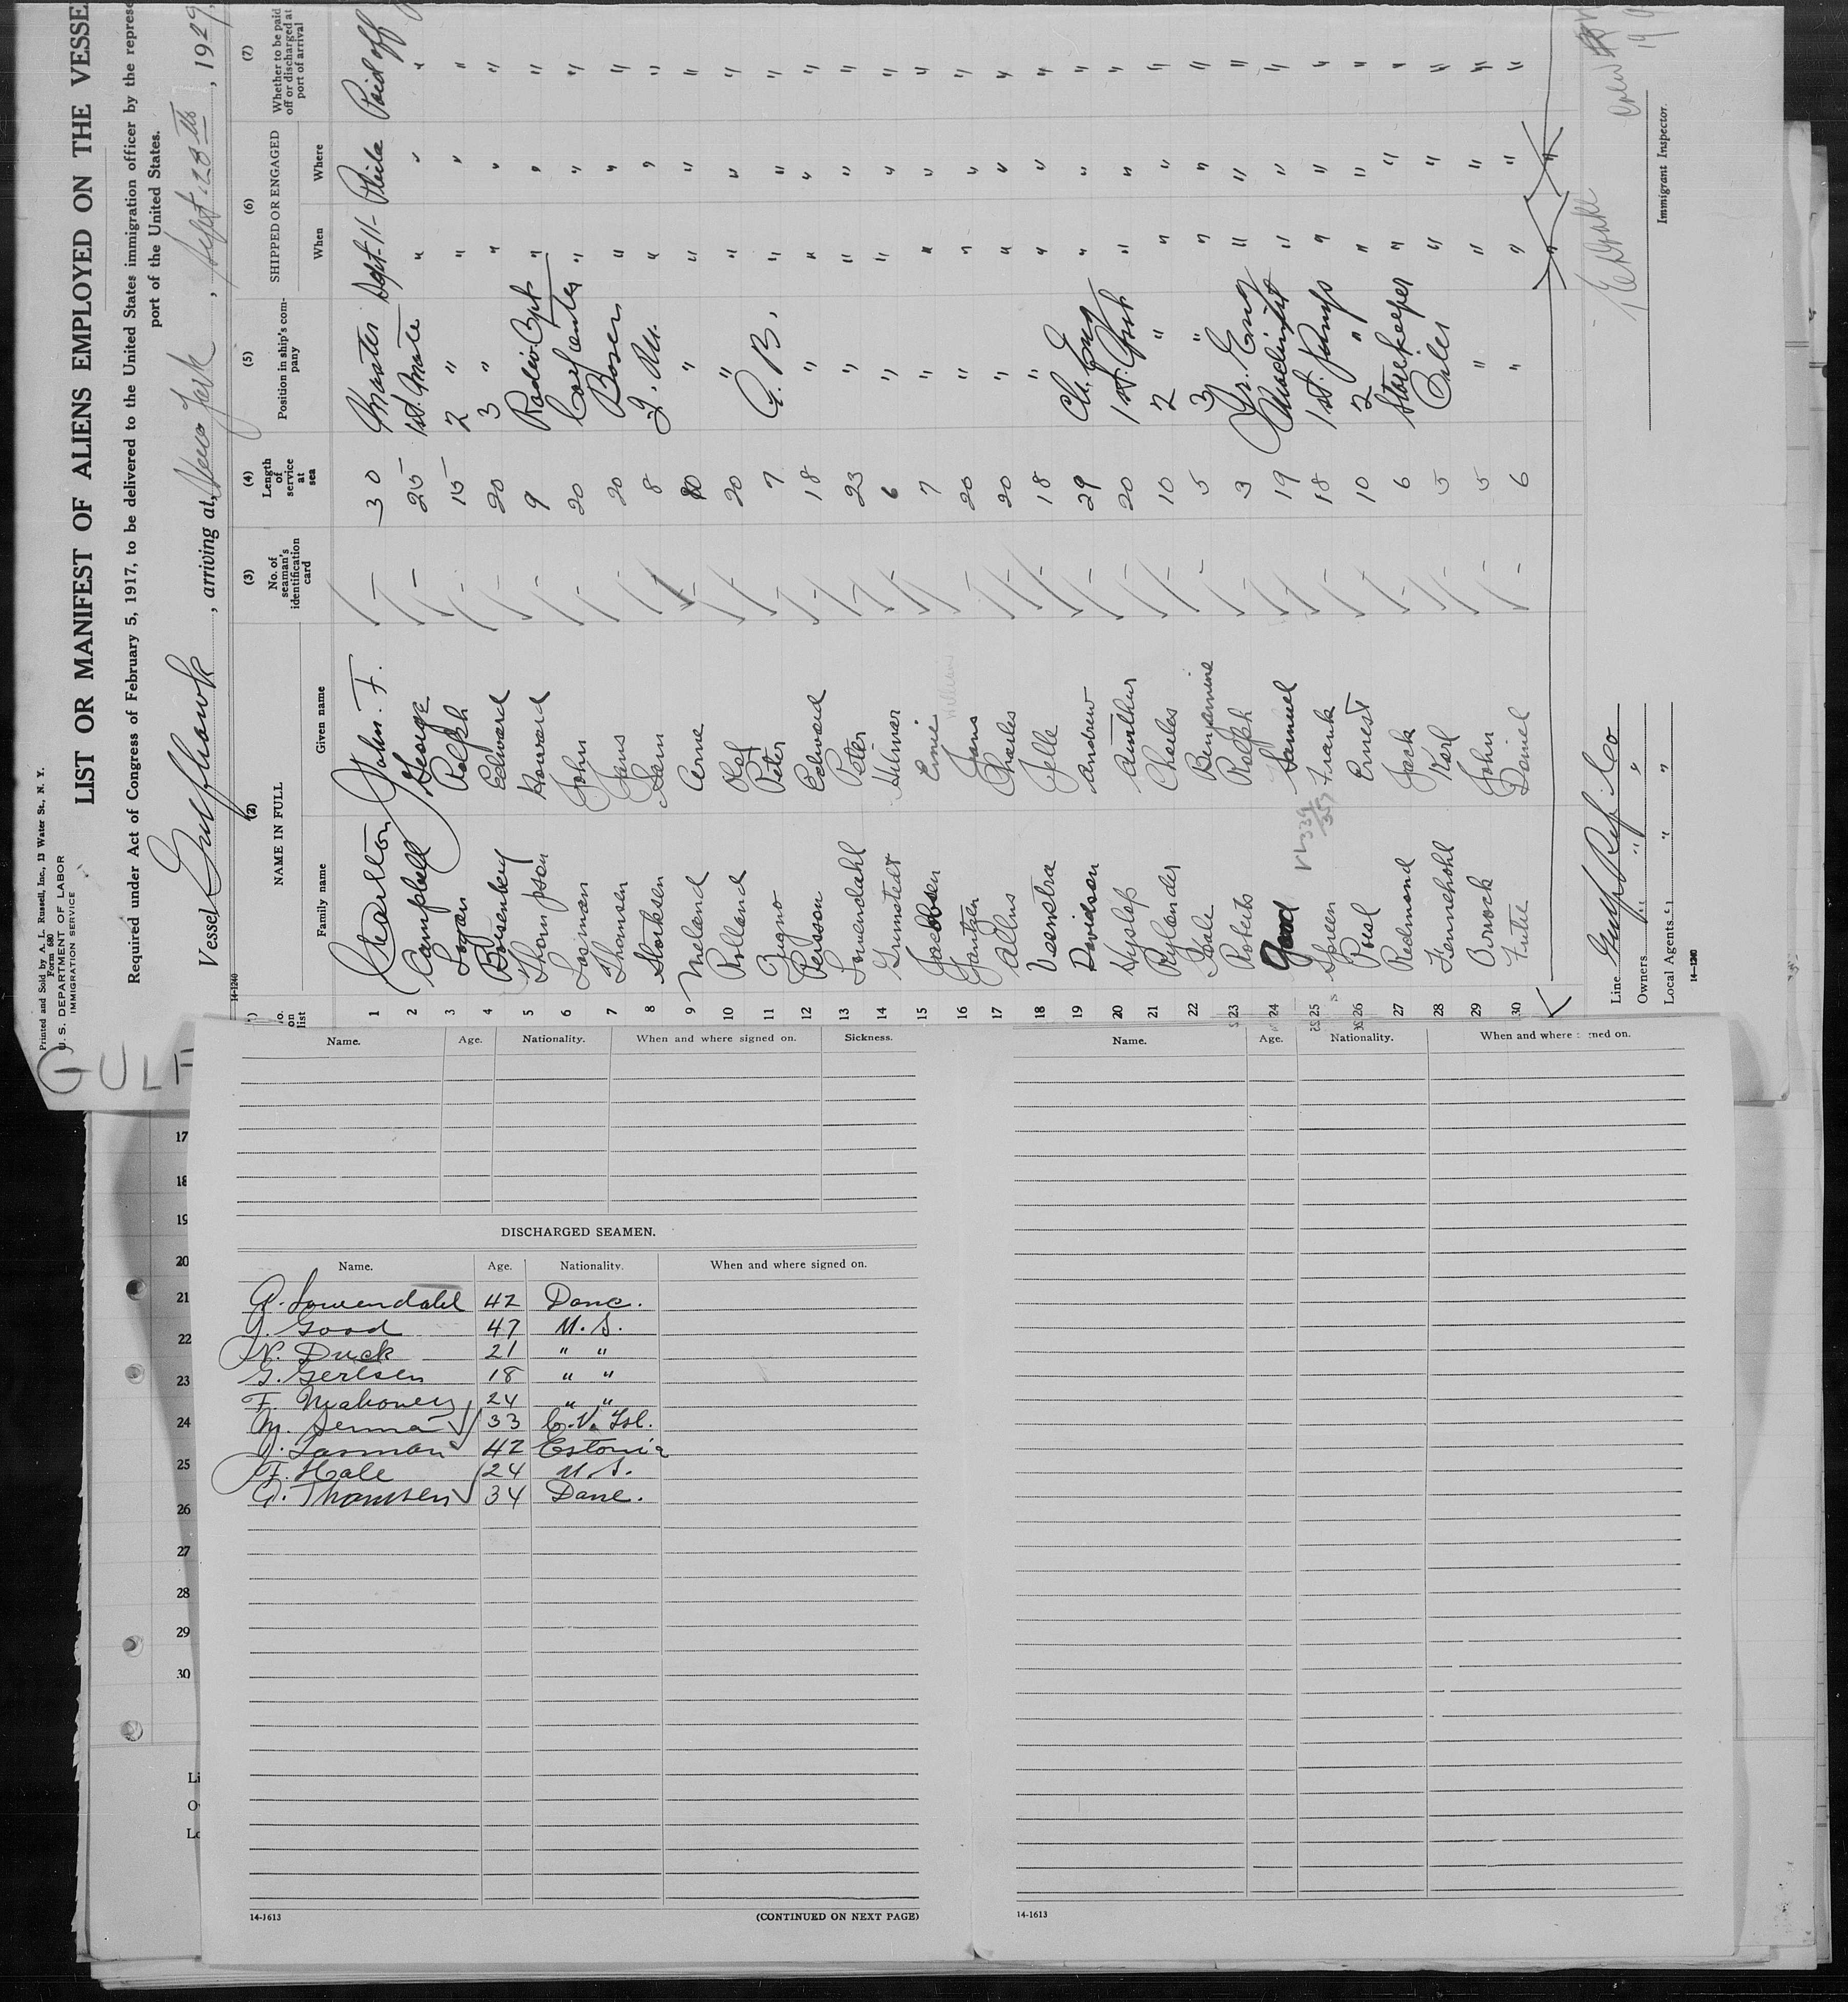 Printed and Sold by A. L. Russell, Inc., 13 Water St., N. Y.
Form 680
U. S. DEPARTMENT OF LABOR
IMMIGRATION SERVICE
LIST OR MANIFEST OF ALIENS EMPLOYED ON THE VESSE
Required under Act of Congress of February 5, 1917, to be delivered to the United States immigration officer by the represe
port of the United States.
Vessel Gulfhawk, arriving at New York, Sept. 28th, 1929,
14-1240
(2) (3) (4) (5) (6) (7)
No. on list
NAME IN FULL
Family name Given name
No. of seaman's identification card
Length of service at sea
Position in ship's company
SHIPPED OR ENGAGED
When Where
Whether to be paid off or discharged at port of arrival
1 Charlton John. F. — 30 Master Sept-11- Phila Paid off
2 Campbell George — 25 1st. Mate " " "
3 Logan Ralph — 15 2 " " " "
4 Edward — 20 3 " " " "
5 Thompson Howard — 9 Radio Opt " " "
6 Lasman John — 20 Carpenter " " "
7 Thomsen Jens — 20 Bosen " " "
8 Storksen — 8 Q. M. " " "
9 Meland Arne — 20 " " " "
10 Rolland Olaf — 20 " " " "
11 Zugno Peter — 7 A. B. " " "
12 Persson Edward — 18 " " " "
13 Lowendahl Peter — 23 " " " "
14 Grimstedt Hilmar — 6 " " " "
15 Jacobsen Ernie — 7 " " " "
16 Jantzen Jans — 20 " " " "
William
17 Allus Charles — 20 " " " "
18 Veenstra Jelle — 18 " " " "
19 Davidson Andrew — 29 Ch. Eng " " "
20 Hyslop Aurthur — 20 1st. Asst. " " "
21 Rylander Charles — 10 2 " " " "
22 Hale Benjamine — 5 3 " " " "
23 Roberts Ralph — 3 Jr. Eng " " "
24 Good Samuel — 19 Machinist " " "
25 Spreen Frank — 18 1st. Pump " " "
26 Poesl Ernest — 10 2 " " " "
27 Redmond Jack — 6 Storekeeper " " "
28 Fennehohl Karl — 5 Oiler " " "
29 John — 5 " " " "
30 Daniel — 6 " " " "
Line Gulf Ref. Co
Owners " " "
Local Agents " " "
14-1240
Immigrant Inspector.
GULF
17
18
19
20
21
22
23
24
25
26
27
28
29
30
Name. Age. Nationality. When and where signed on. Sickness.
DISCHARGED SEAMEN.
Name. Age. Nationality. When and where signed on.
P. Lowendahl 42 Dane.
J. Good 47 U. S.
N. Duck 21 " "
G. Gerlsen 18 " "
F. Mahoney 24 " "
M. Senna 33 C. V. Isl.
J. Lasman 42 Estonia
F. Hale 24 U. S.
G. Thomsen 34 Dane.
14-1613 (CONTINUED ON NEXT PAGE)
Name. Age. Nationality. When and where signed on.
14-1613